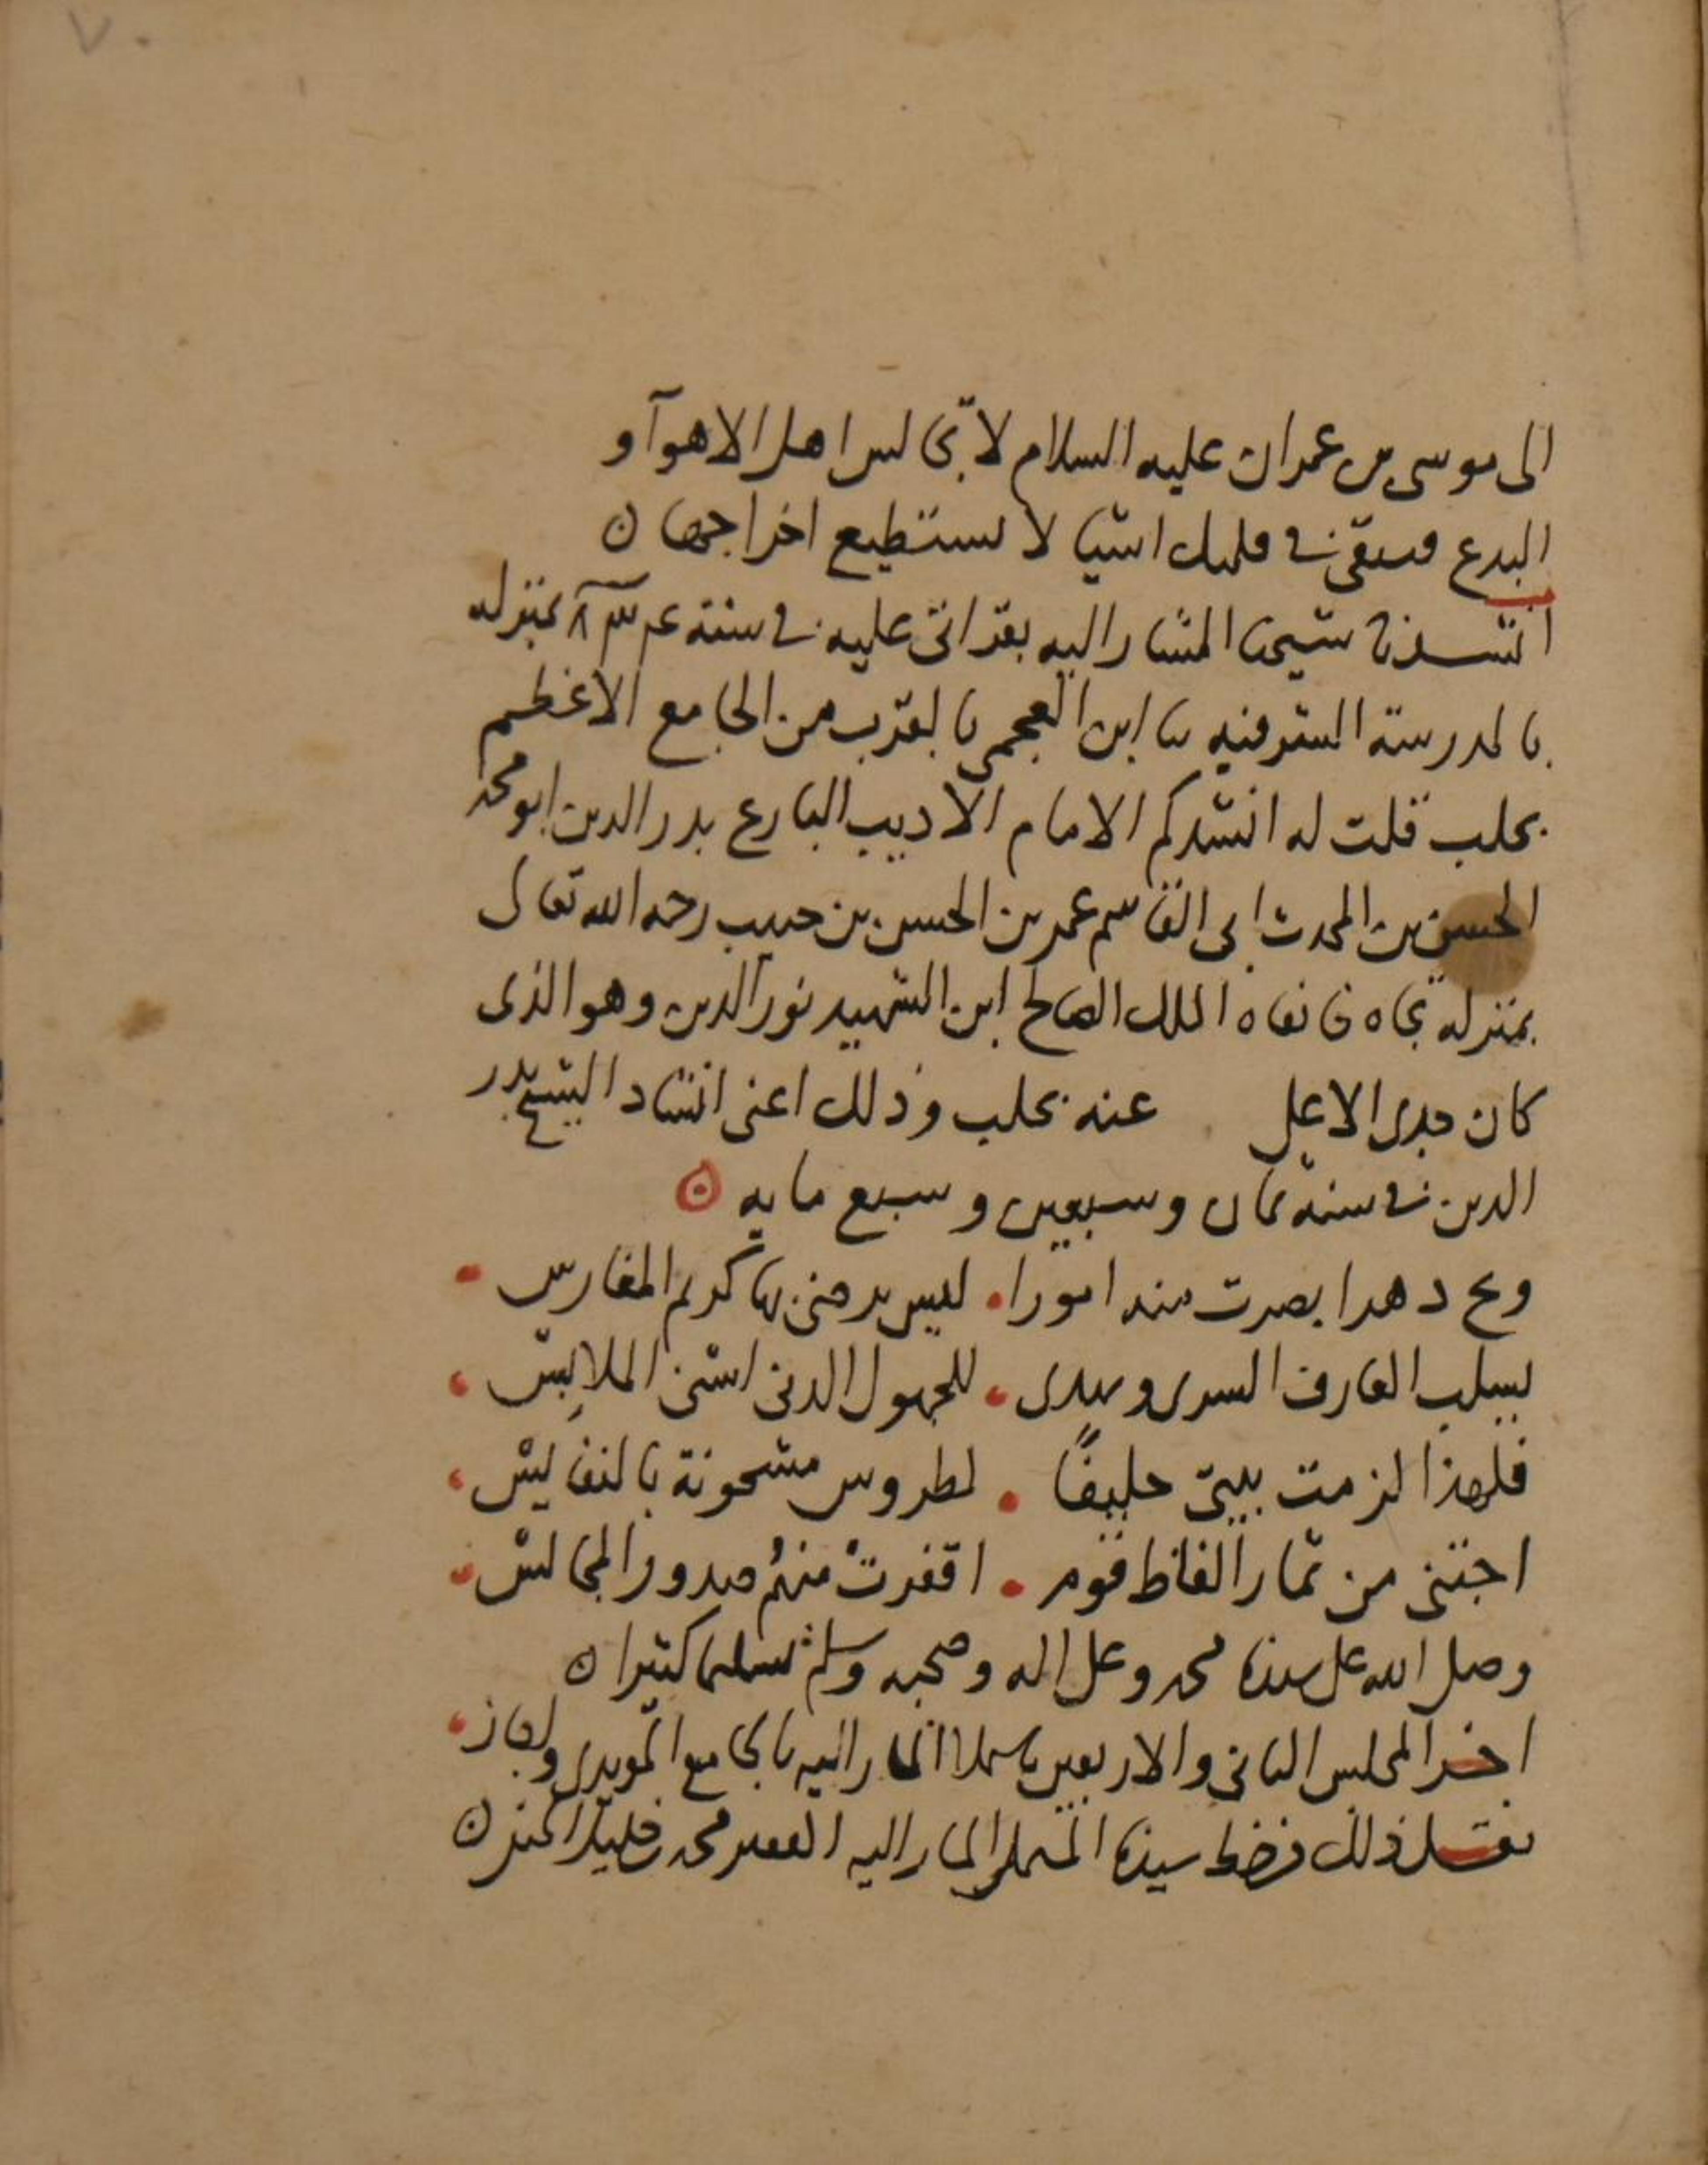 ٧٠
الى موسى بن عمران عليه السلام لا تجالس اهل الاهوآ و
البدع فيبقى في قلبك اشيا لا تستطيع اخراجها ن
انشدنا شيخنا المشار اليه بقراتي عليه في سنة بمنزله
بالمدرسة الشرفيه ابن العجمي بالقرب من الجامع الاعظم
بحلب قلت له انشدكم الامام الاديب البارع بدر الدين ابو محمد
الحسن بن المحدث ابي القاسم عمر بن الحسن بن حبيب رحمه الله تعالى
بمنزله تجاه خانقاه الملك الصالح ابن الشهيد نور الدين وهو الذى
كان جدى الاعلى عنه بحلب وذلك اعنى انشاد الشيخ بدر
الدين في سنة ثمان وسبعين وسبع مايه ن
ويح دهر ابصرت منه امورا . ليس يرضى بها كريم المغارس .
يسلب العارف السرى ويهدى . للجهول الدنى اسنى الملابس .
فلهذا لزمت بيتى حليفًا . لطروس مشحونة بالنفايس .
اجتنى من ثمار الفاظ قوم . اقفرتْ منهُم صدور المجالس .
وصلى الله على سيدنا محمد وعلى اله وصحبه وسلم تسليما كثيرا ن
اخر المجلس الثانى والاربعين باملا المشار اليه بالجامع المويدى
نقل ذلك من خط سيدنا المملى المشار اليه الفقير محمد ن